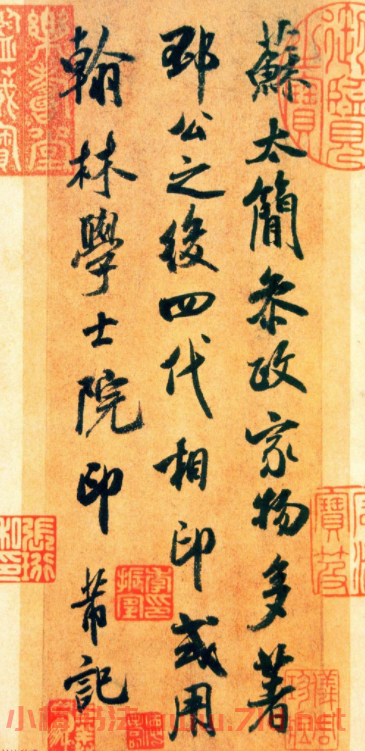 蘇太簡參政家物多著
邳公之後四代相印或用
翰林學士院印 芾記
樂善堂